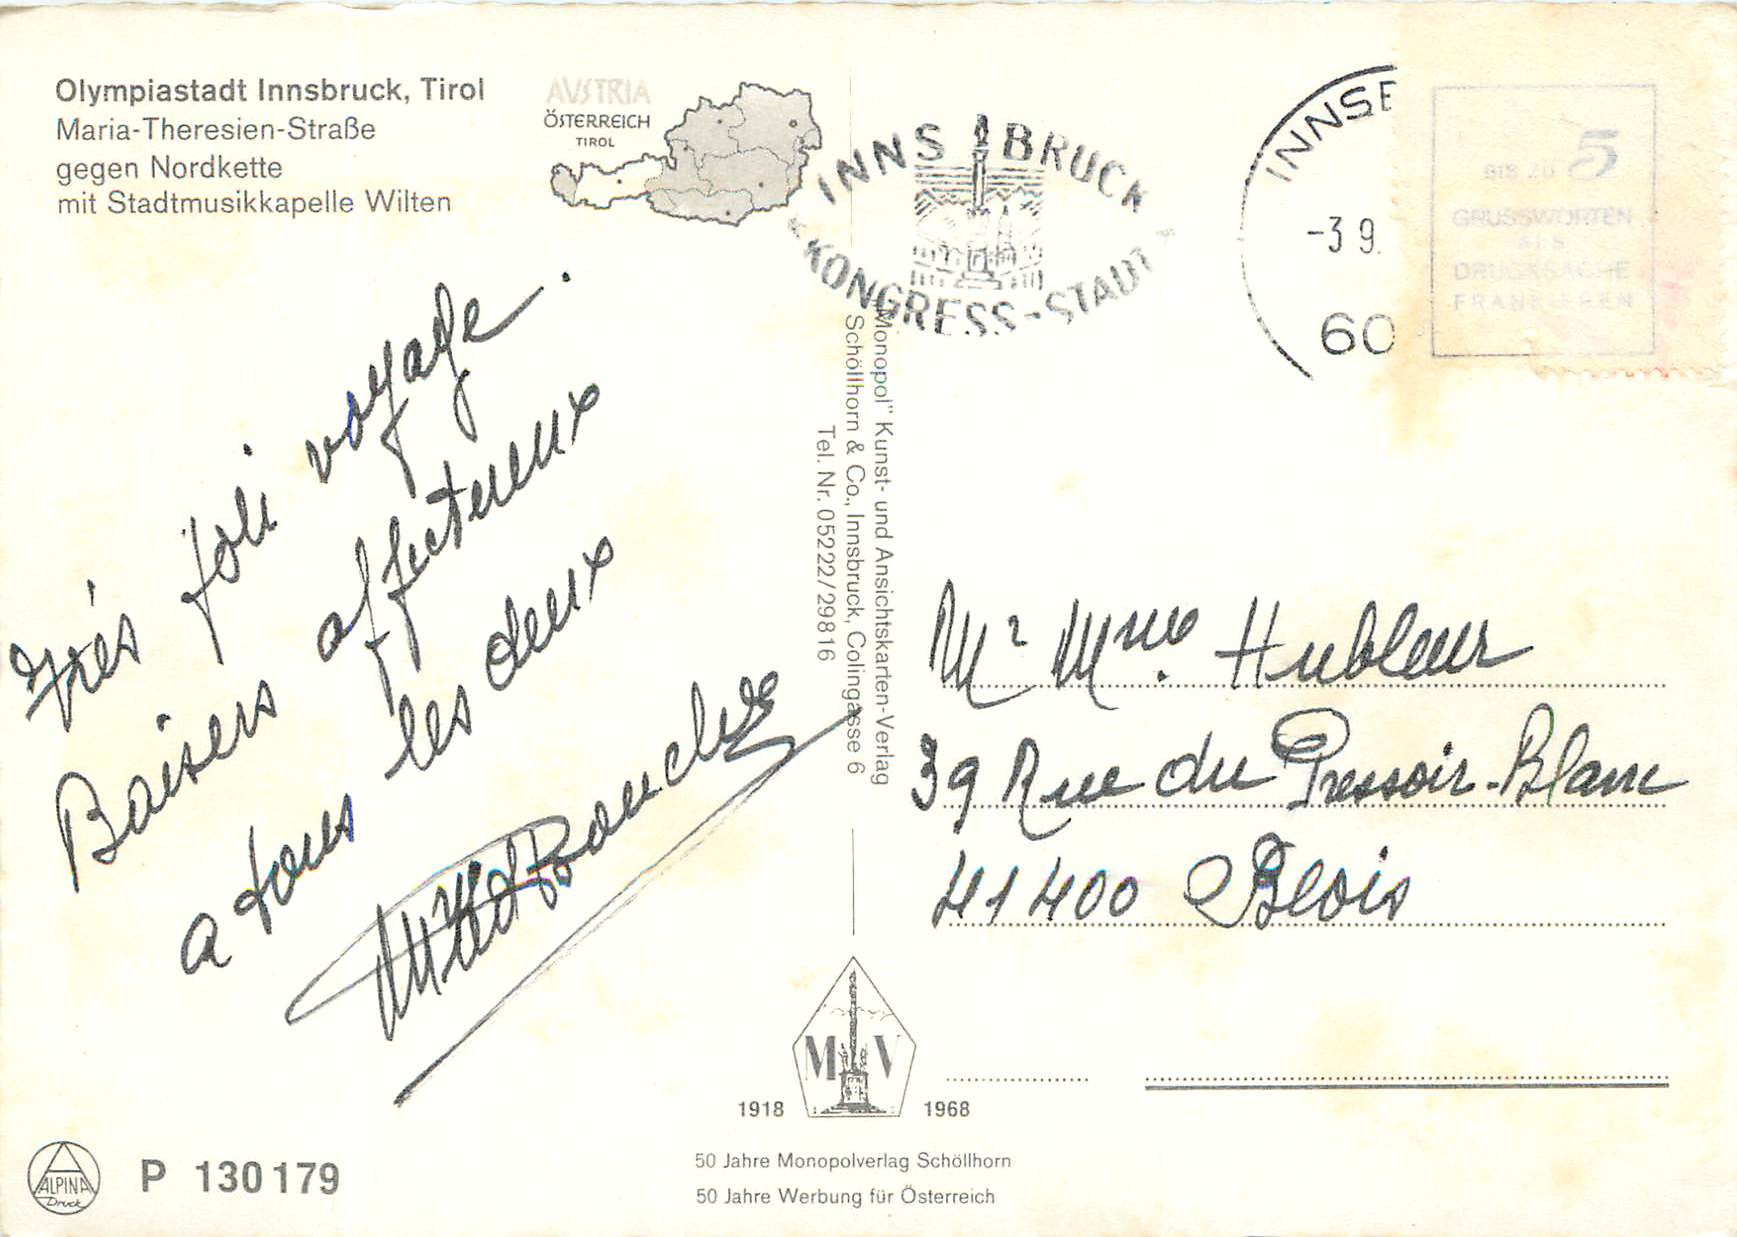 Olympiastadt Innsbruck, Tirol
Maria-Theresien-Straße
gegen Nordkette
mit Stadtmusikkapelle Wilten
AVSTRIA
ÖSTERREICH
TIROL
INNSBRUCK
KONGRESS-STADT
INNSB
-3 9.
60
BIS ZU 5
GRUSSWORTEN
ALS
DRUCKSACHE
FRANKIEREN
très joli voyage.
Baisers affectueux
a tous les deux
"Monopol" Kunst- und Ansichtskarten-Verlag
Schöllhorn & Co., Innsbruck, Colingasse 6
Tel. Nr. 05222/29816
Mr Mme
39 Rue du Pressoir-Blanc
41400 Blois
M V
1918 1968
50 Jahre Monopolverlag Schöllhorn
50 Jahre Werbung für Österreich
ALPINA
Druck
P 130179